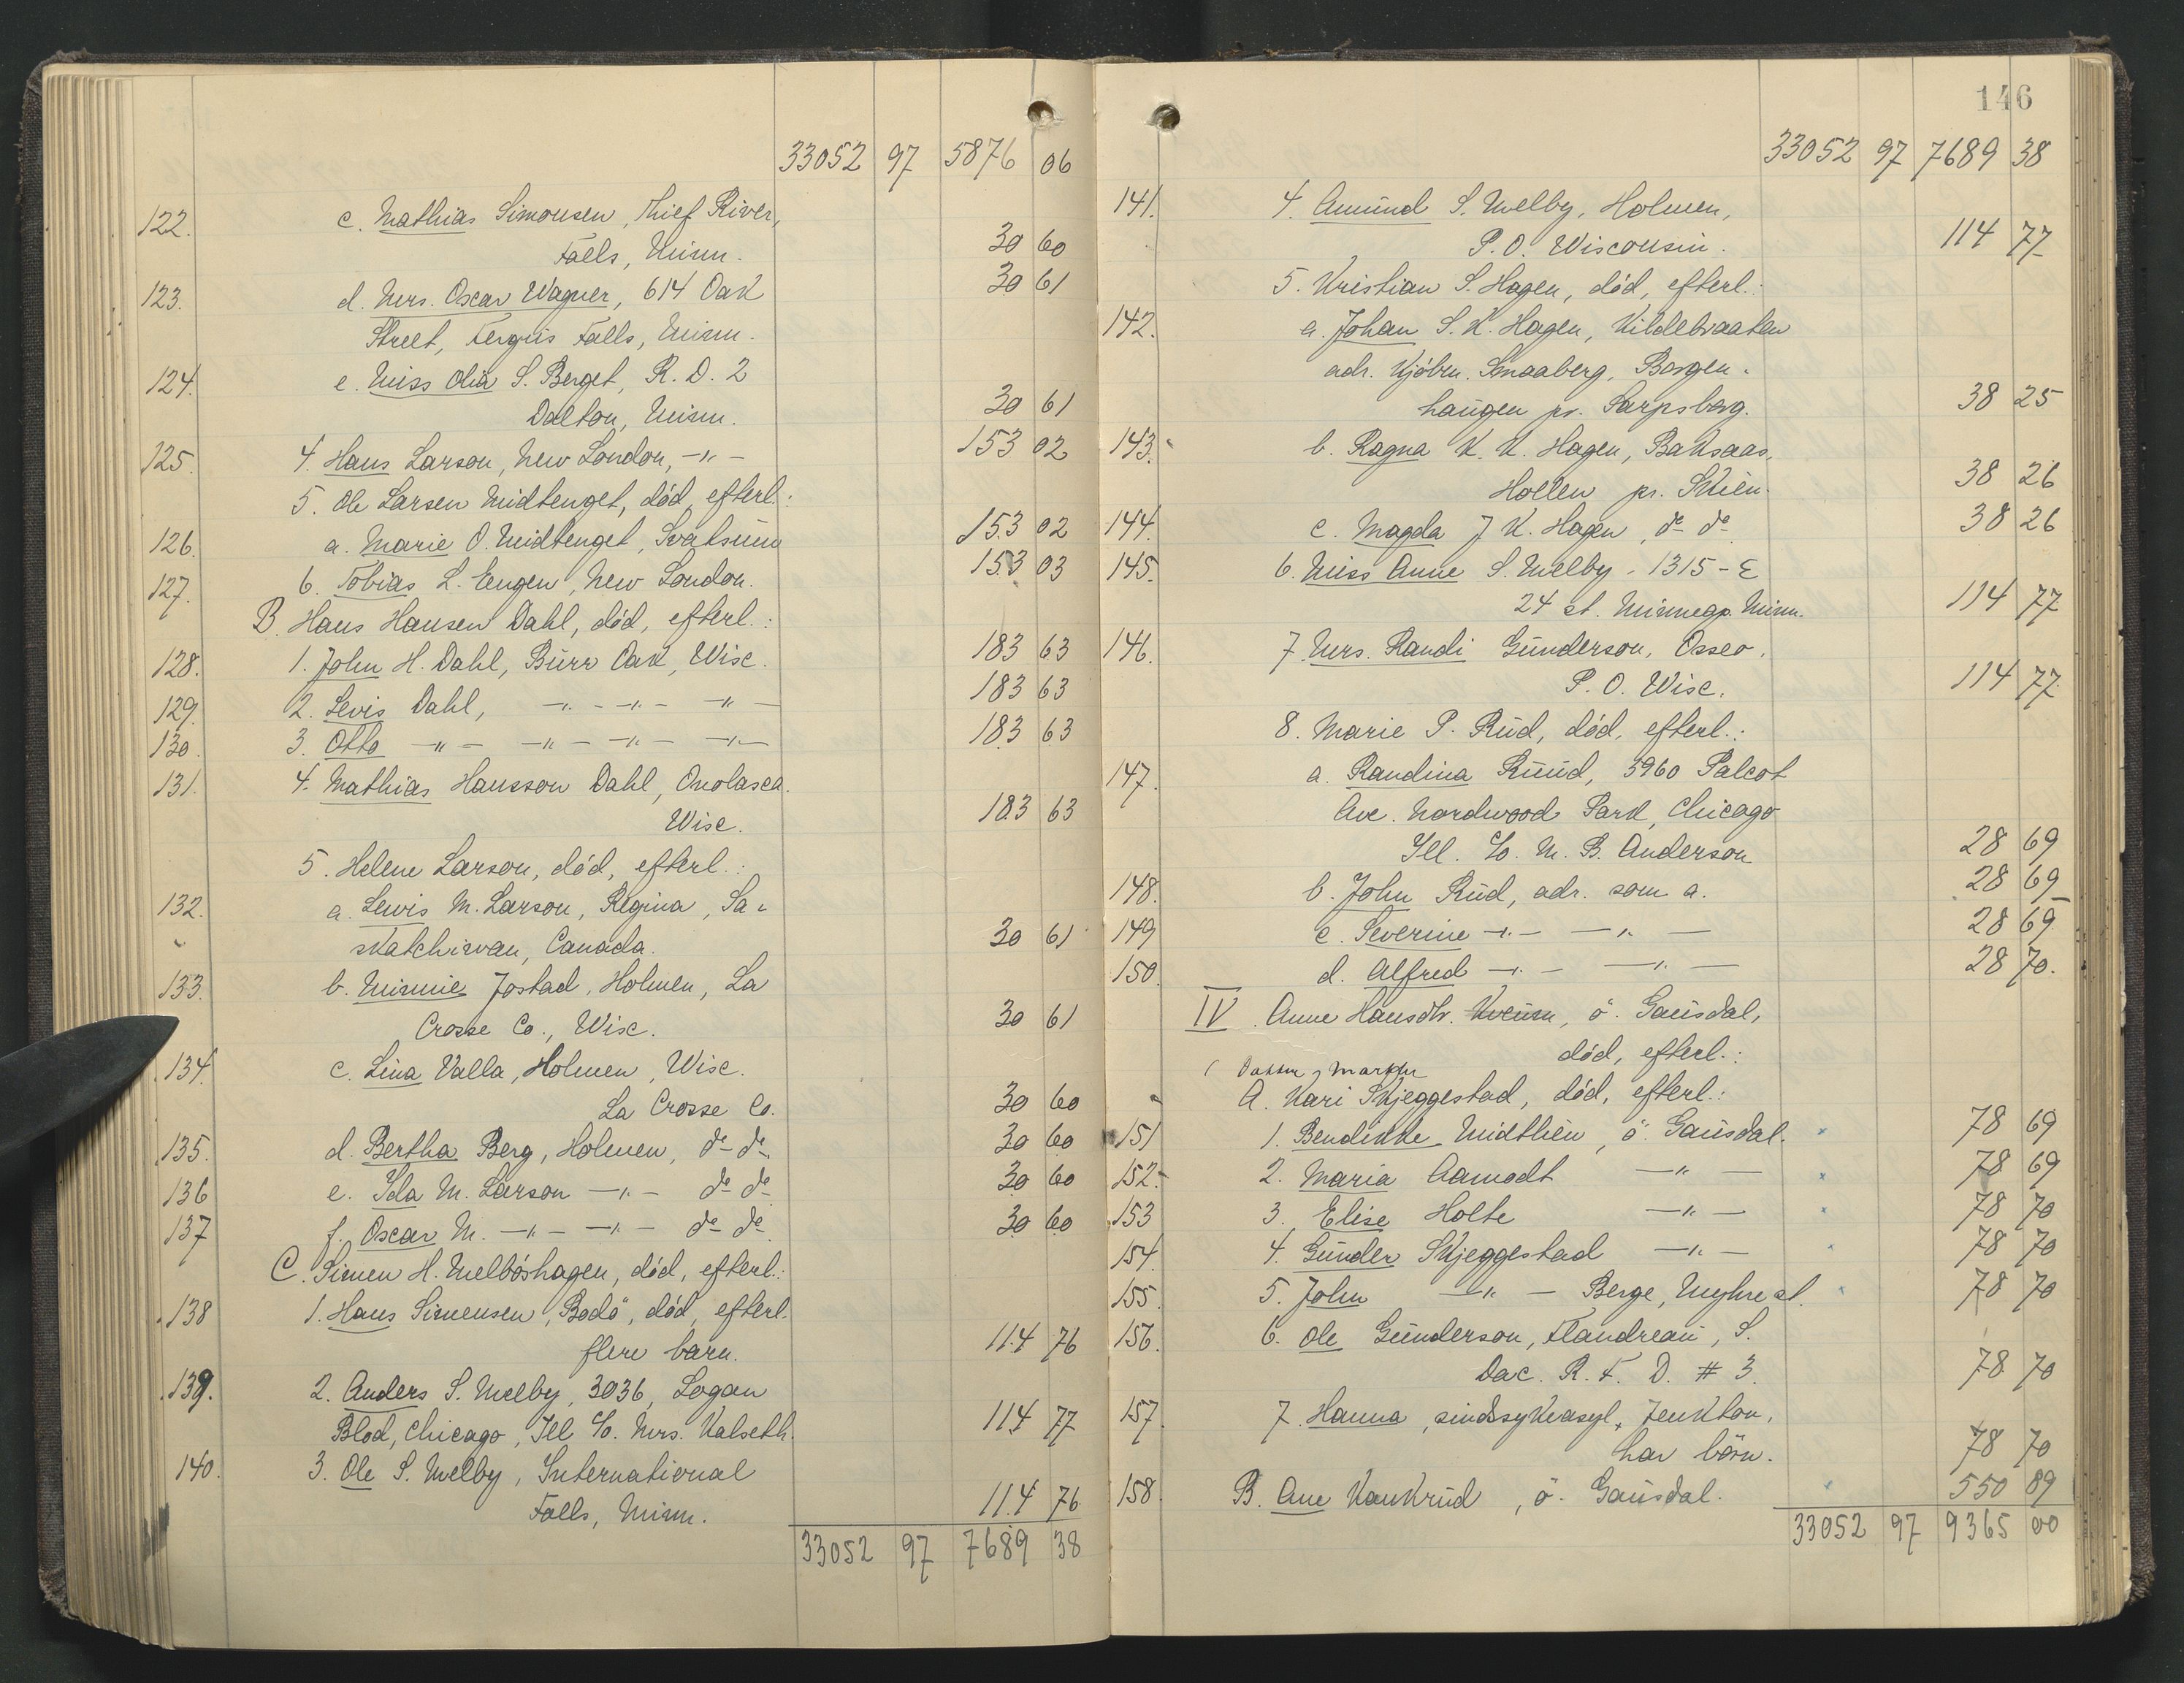 33052 97 5876 06
122. c. Mathias Simonsen, Thief River,
Falls, Minn. 30 60
123. d. Mrs. Oscar Wagner, 614 Oak 30 61
Street, Fergus Falls, Minn.
124. e. Miss Olia S. Berget, R. D. 2
Dalton, Minn. 30 61
125. 4. Hans Larson, New London, -"- 153 02
5. Ole Larsen Midtenget, död, efterl.:
126. a. Marie O. Midtenget, Svatsum 153 02
127. 6. Tobias L. Engen, New London. 153 03
B. Hans Hansen Dahl, död, efterl.:
128. 1. John H. Dahl, Burr Oak, Wisc. 183 63
129. 2. Levis Dahl, -"- -"- -"- 183 63
130. 3. Otto -"- -"- -"- -"- 183 63
131. 4. Mathias Hansson Dahl, Onolasca.
Wisc. 183 63
5. Helene Larson, död, efterl.:
132. a. Lewis M. Larson, Regina, Sa-
skatchiwan, Canada. 30 61
133. b. Minnie Jostad, Holmen, La
Crosse Co., Wisc. 30 61
134. c. Lina Valla, Holmen, Wisc.
La Crosse Co. 30 60
135. d. Bertha Berg, Holmen, do do 30 60
136 e. Ida M. Larson -"- do do 30 60
137 f. Oscar M. -"- -"- do do 30 60
C. Simen H. Melböshagen, död, efterl.:
138 1. Hans Simensen, Bodö, död, efterl.
flere barn. 114 76
139. 2. Anders S. Melby, 3036, Logan
Blod, Chicago, Ill c/o. Mrs. Kalseth. 114 77
140. 3. Ole S. Melby, International
Falls, Minn. 114 76
33052 97 7689 38
146
33052 97 7689 38
141. 4. Amund S. Melby, Holmen,
P. O. Wisconsin. 114 77
5. Kristian S. Hagen, död, efterl.:
142. a. Johan S. K. Hagen, Kildebraaten
adr. Kjöbm. Smaaberg, Borgen-
haugen pr. Sarpsborg. 38 25
143. b. Ragna K. K. Hagen, Baksaas,
Hollen pr. Skien. 38 26
144. c. Magda J K. Hagen, do do 38 26
145. 6. Miss Anne S. Melby - 1315 - E
24 st. Minneap. Minn. 114 77
146. 7. Mrs. Randi Gunderson, Osseo,
P. O. Wisc. 114 77
8. Marie P. Rud, död, efterl.:
147. a. Randina Ruud, 5960 Palcot
Ave. Nordwood Park, Chicago
Ill. c/o. M. B. Anderson 28 69
148. b. John Rud, adr. som a. 28 69
149 c. Severine -"- -"- 28 69
150. d. Alfred -"- -"- 28 70.
IV. Anne Hansdtr. Kveum, ö. Gausdal,
död, efterl.:
A. Kari Skjeggestad, död, efterl.:
151 1. Bendikke Midtlien, ö. Gausdal. 78 69
152. 2. Maria Aamodt -"- 78 69
153 3. Elise Holte -"- 78 70
154. 4. Gunder Skjeggestad -"- 78 70
155. 5. John -"- Berge, Myhre st. 78 70
156. 6. Ole Gunderson, Flandreau, S.
Dac. R. F. D. # 3. 78 70
157. 7. Hanna, sindssykeasyl, Jenkton,
har börn. 78 70
158. B. Ane Kankrud, ö. Gausdal. 550 89
33052 97 9365 00